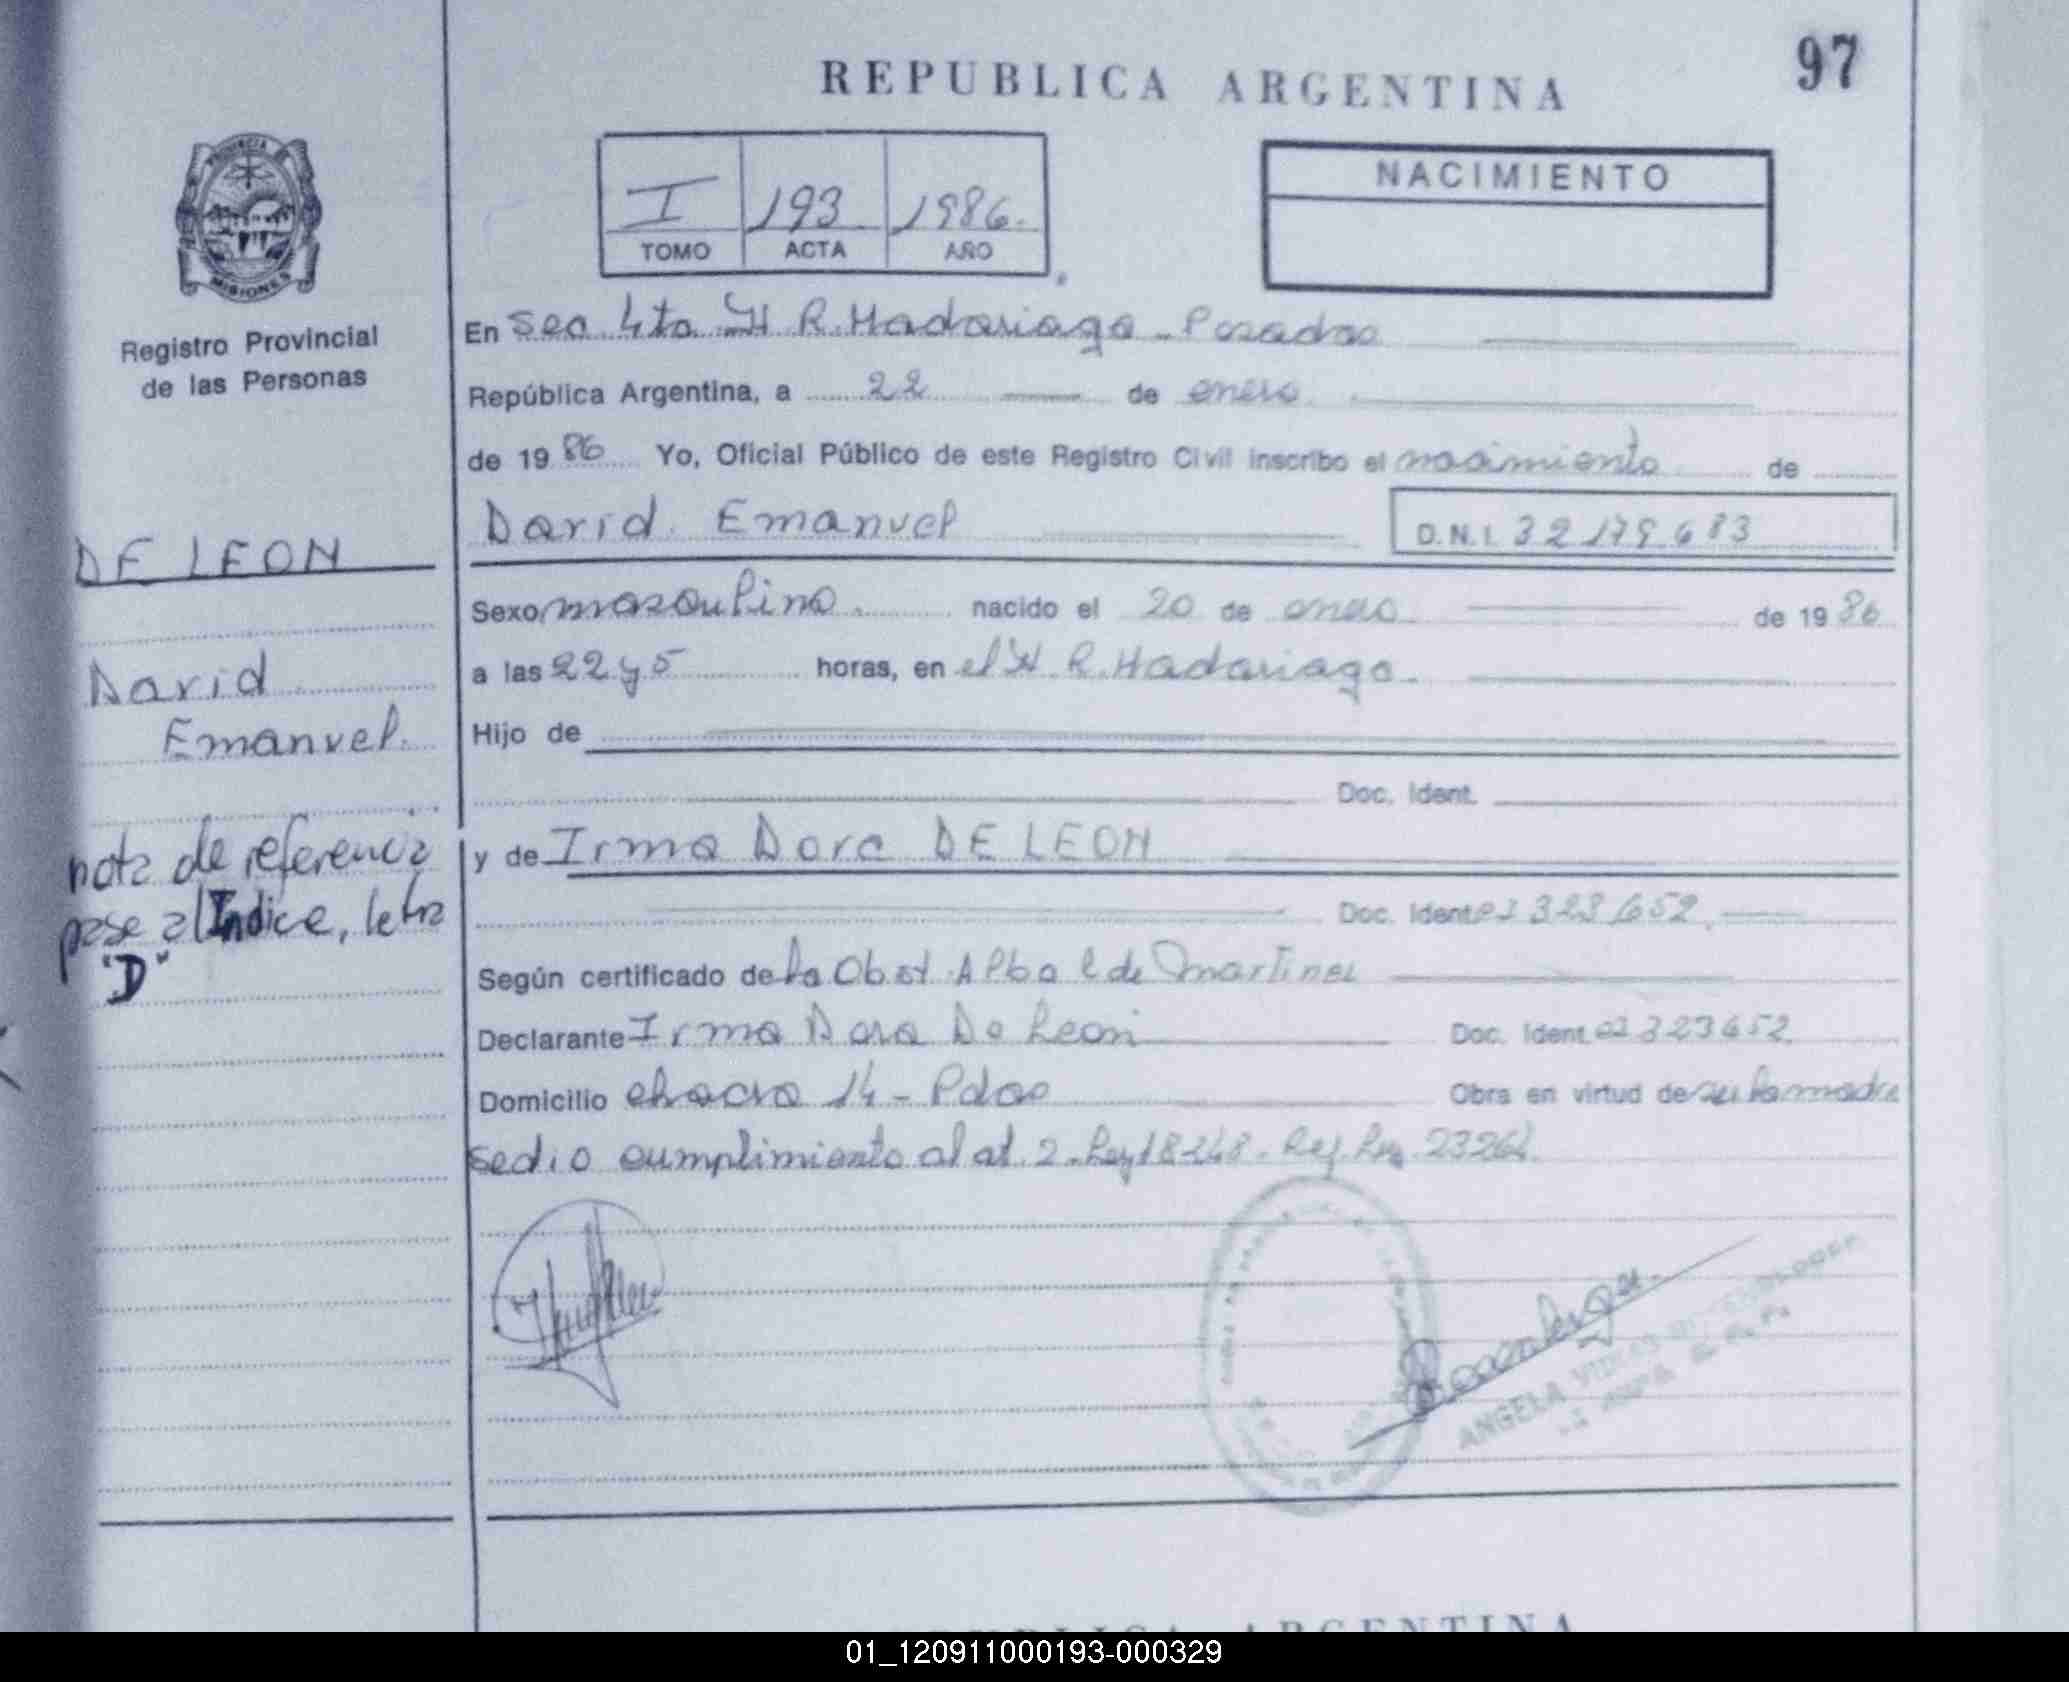 97
REPUBLICA ARGENTINA
PROVINCIA DE
MISIONES
Registro Provincial
de las Personas
I 193 1986.
TOMO ACTA AÑO
NACIMIENTO
En Sec 4ta H R. Madariaga - Posadas
República Argentina, a 22 de enero
de 1986 Yo, Oficial Público de este Registro Civil inscribo el nacimiento de
David Emanuel
D.N.I. 32179683
DE LEON
David
Emanuel.
nota de referencia
pase al Indice, letra
"D"
Sexo masculino. nacido el 20 de enero de 1986
a las 22 y 5 horas, en el H. R. Madariaga.
Hijo de
Doc. Ident.
y de Irma Dora DE LEON
Doc. Ident. 323652.
Según certificado de la Obst. Alba de Martinez
Declarante Irma Dora De Leon Doc. Ident. 323652.
Domicilio chacra 14 - Pdas Obra en virtud de ser la madre
se dio cumplimiento al at. 2. Ley 18248. Ref. 23264.
ANGELA
REPUBLICA ARGENTINA
01_120911000193-000329